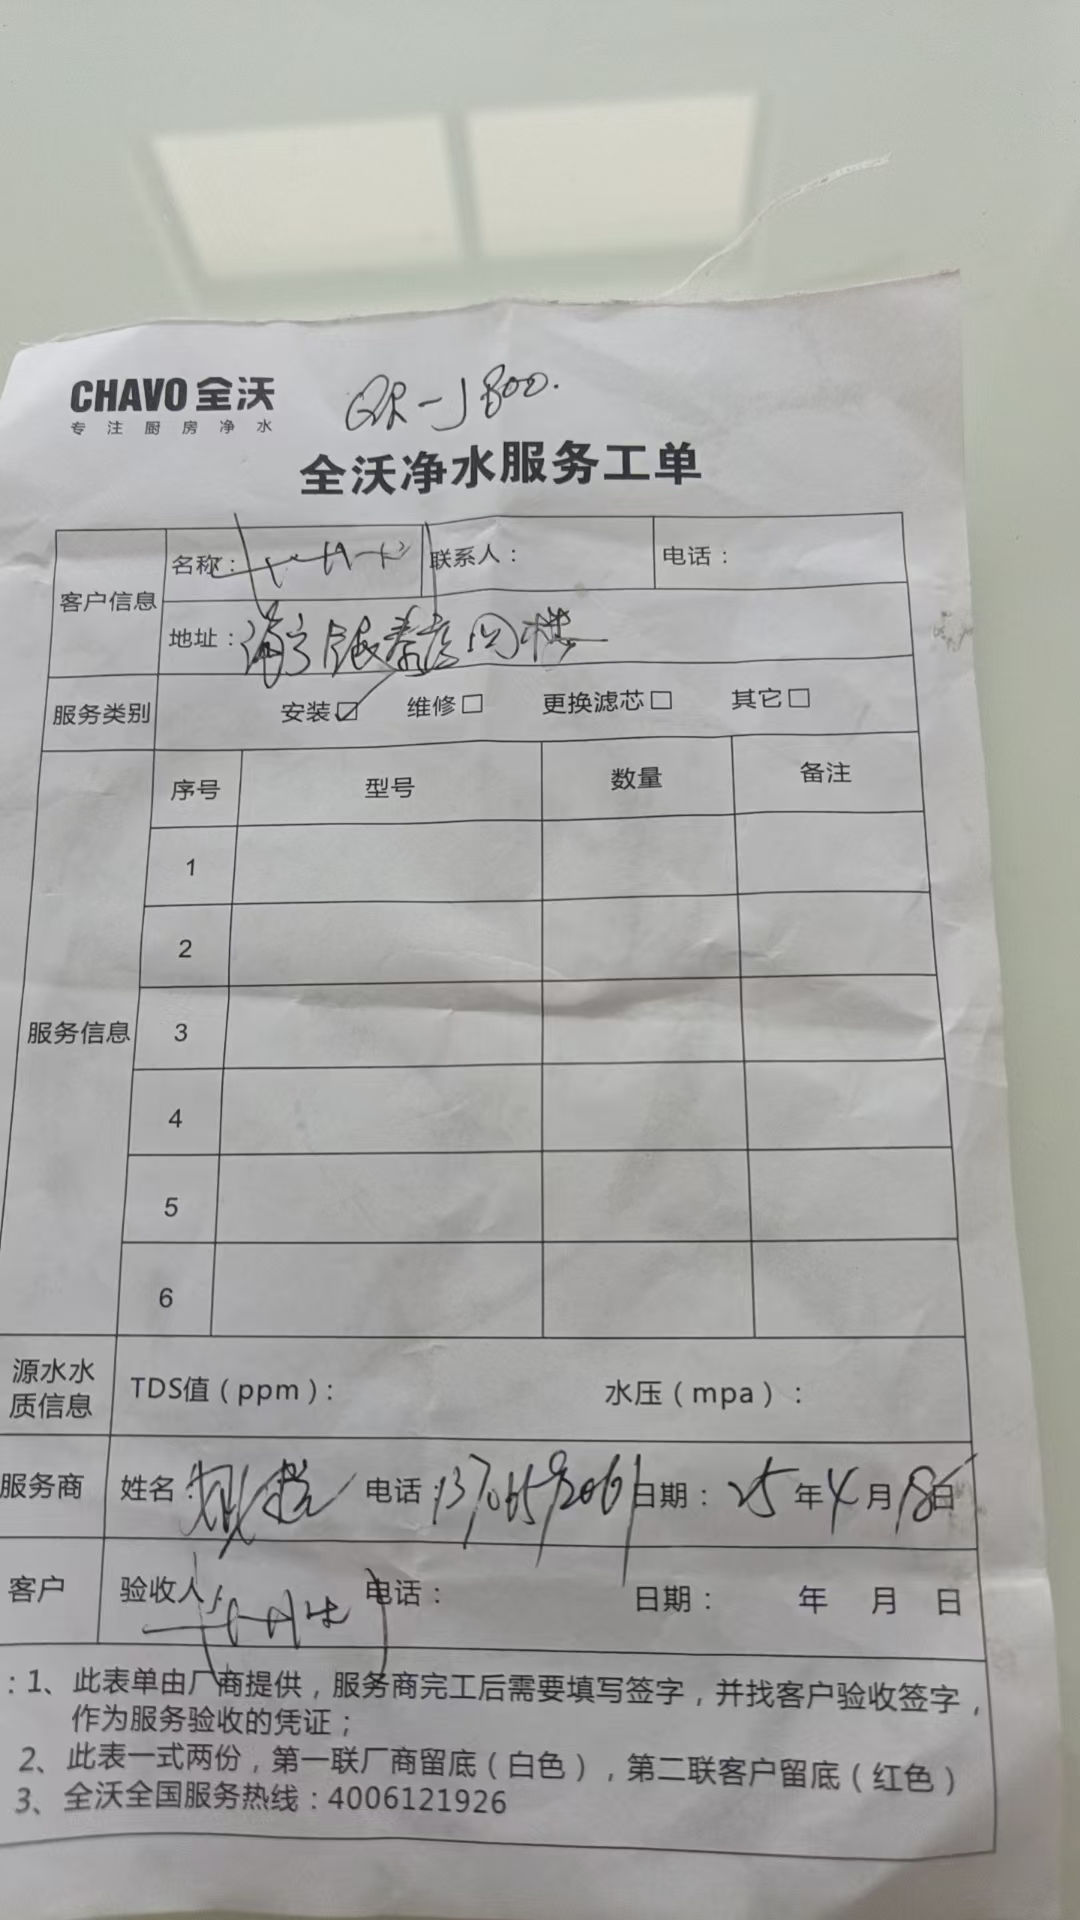 CHAVO 全沃
专注厨房净水
QR-J800.
全沃净水服务工单
客户信息 名称: 联系人: 电话:
地址:
服务类别 安装☑ 维修□ 更换滤芯□ 其它□
服务信息 序号 型号 数量 备注
1
2
3
4
5
6
源水水质信息 TDS值(ppm): 水压(mpa):
服务商 姓名: 电话: 日期: 25年4月18日
客户 验收人: 电话: 日期: 年 月 日
: 1、此表单由厂商提供,服务商完工后需要填写签字,并找客户验收签字,
作为服务验收的凭证;
2、此表一式两份,第一联厂商留底(白色),第二联客户留底(红色)
3、全沃全国服务热线:4006121926